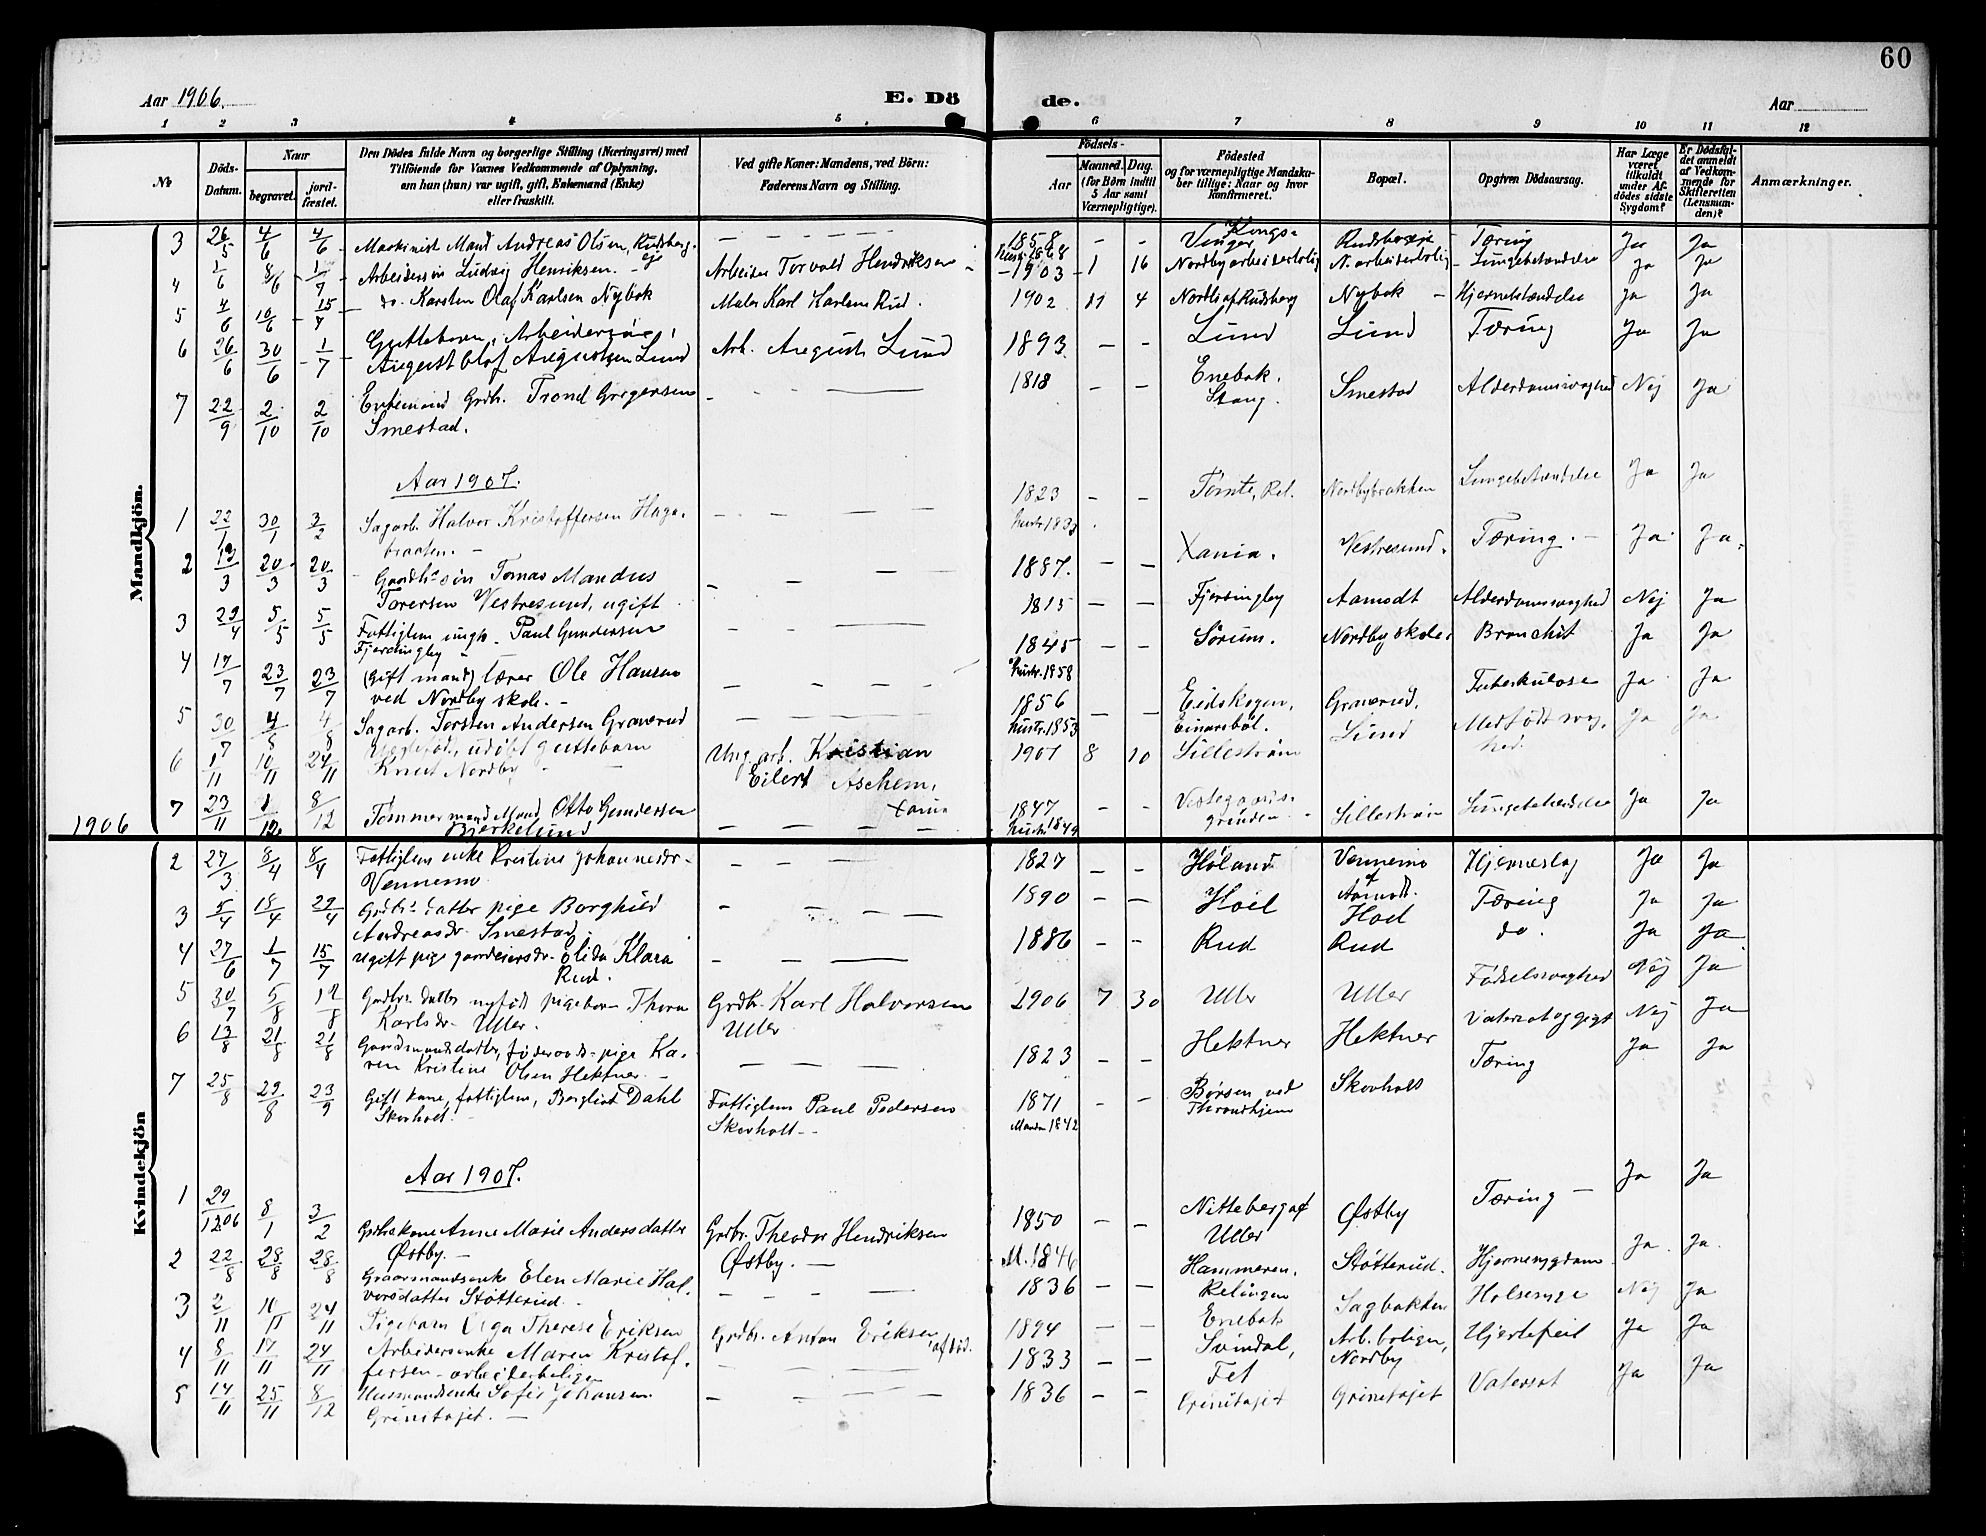 60
Aar 1906.
E. Dö
de.
Aar
1 2 3 4 5. 6 7 8 9 10 11 12
№
Döds-Datum.
Naar
begravet.
jord-fæstet.
Den Dödes fulde Navn og borgerlige Stilling (Næringsvei) med
Tilföiende for Voxnes Vedkommende af Oplysning,
om han (hun) var ugift, gift, Enkemand (Enke)
eller fraskilt.
Ved gifte Koner: Mandens, ved Börn:
Faderens Navn og Stilling.
Födsels-
Aar
Maaned. Dag.
(for Børn indtil
5 Aar samt
Værnepligtige).
Födested
og for værnepligtige Mandska-
ber tillige: Naar og hvor
konfirmeret.
Bopæl.
Opgiven Dödsaarsag.
Har Læge
været
tilkaldt
under Af-
dödes sidste
Sygdom?
Er Dödsfal-
det anmeldt
af Vedkom-
mende for
Skifteretten
(Lensman-
den)?
Anmærkninger.
Mandkjön.
3 26/5 4/6 4/6 Maskinist Mand Andreas Olsen, Rudsberg. 1858 Kongs-
Vinger Tæring Ja Ja
4 1/6 8/6 1/7 Arbeidersøn Ludvig Henriksen. Arbeider Torvald Hendriksen 1903 1 16 Nordby arbeiderbolig N. arbeiderbolig Lungebetændelse Ja Ja
5 4/6 10/6 15/7 do. Karsten Olaf Karlsen Nybak Maler Karl Karlsen Rud. 1902 11 4 Nordli af Rudsberg Nybak Hjernebetændelse Ja Ja
6 26/6 30/6 1/7 Guttebarn, Arbeidersøn,
August Olaf Augustsen Lund Arb. August Lund 1893 Lund Lund Tæring Ja Ja
7 22/9 2/10 2/10 Enkemand Grdb. Trond Gregersen
Smestad. 1818 Enebak.
Stang. Smestad Alderdomssvaghed Nej Ja
Aar 1907.
1 22/1 30/1 3/2 Sagarb. Halvor Kristoffersen Haga-
braaten. 1823 Tomte, Rel. Nordbybrakken Lungebetændelse Ja Ja
2 13/3 20/3 20/3 Gaardbr. søn Tomas Mandus
Torersen Vestresund, ugift 1887. Xania. Vestresund. Tæring. Ja Ja
3 29/4 5/5 5/5 Fattiglem ungk. Paul Gundersen
Fjerdingby 1815 Fjerdingby Aamodt Alderdomssvaghed Nej Ja
4 17/7 23/7 23/7 (Gift mand) lærer Ole Hansen
ved Nordby skole. 1845
hustr. 1858 Sørum. Nordby skole Bronchit Ja Ja
5 30/7 4/8 4/8 Sagarb. Torsten Andersen Granerud 1856
hustr. 1853 Eidskogen, Granerud. Tuberkulose Ja Ja
6 1/11 10/11 24/11 udøbt guttebarn
Knut Nordby Ung. arb. Kristian
Eilert Aschem,
Xania 1907 8 10 Lillestrøm Lund Medfødt svag-
hed. Ja Ja
7 23/11 1/12 8/12 Tømmermand Mand Otto Gundersen
Bjerkelund 1847
hustr. 1849 Lillestrøm Lungebetændelse Ja Ja
1906
Kvindekjön
2 27/3 8/4 8/4 Fattiglem enke Kristine Johannesdr.
Vennemo 1827 Høland Vennemo
af
Aamodt. Hjerneslag Ja Ja
3 5/4 18/4 29/4 Grdbr. datter pige Borghild
Andreasdr. Smestad 1890 Hoel Hoel Tæring Ja Ja
4 27/6 1/7 15/7 ugift pige gaardeiersdr. Elida Klara
Rud. 1886 Rud Rud do. Ja Ja
5 30/7 5/8 12/8 Grdbr. datter nyfødt pigebarn Thora
Karlsdr. Uller. Grdbr. Karl Halvorsen
Uller 1906 7 30 Uller Uller Fødselssvaghed Nej Ja
6 13/8 21/8 21/8 Gaardmandsdatter, føderaads-pige Ka-
ren Kristine Olsen Hektner. 1823 Hektner Hektner Vatersot og gigt Nej Ja
7 25/8 29/8 23/9 Gift kone, fattiglem, Bergliot Dahl
Skovholt. Fattiglem Paul Pedersen
Skovholt 1871
Manden 1842 Børsen ved
Throndhjem Skovholt Tæring Ja Ja
Aar 1907.
1 29/12 06 8/1 3/2 Grdbr.kone Anne Marie Andersdatter
Østby. Grdbr. Theodor Hendriksen
Østby. 1850
M. 1846 Nitteberg af
Uller Østby Tæring Ja Ja
2 22/8 28/8 28/8 Gaardmandsenke Elen Marie Hal-
vorsdatter Støtterud. 1836 Hammeren,
Relingen Støtterud. Hjernesygdom Ja. Ja.
3 2/11 10/11 24/11 Pigebarn Olga Therese Eriksen Grdbr. Anton Eriksen, afdød. 1894 Enebak Sagbakken Halsesyge Nej Ja
4 8/11 17/11 24/11 Arbeidersenke Maren Kristof-
fersen. arbeiderboligen 1833 Svindal,
Fet Arb. boligen,
Nordby Hjertefeil Ja Ja
5 14/11 25/11 8/12 Husmandsenke Sofie Johansen
Grinitajet. 1836 Grinitajet Grinitajet Vatersot Ja Ja